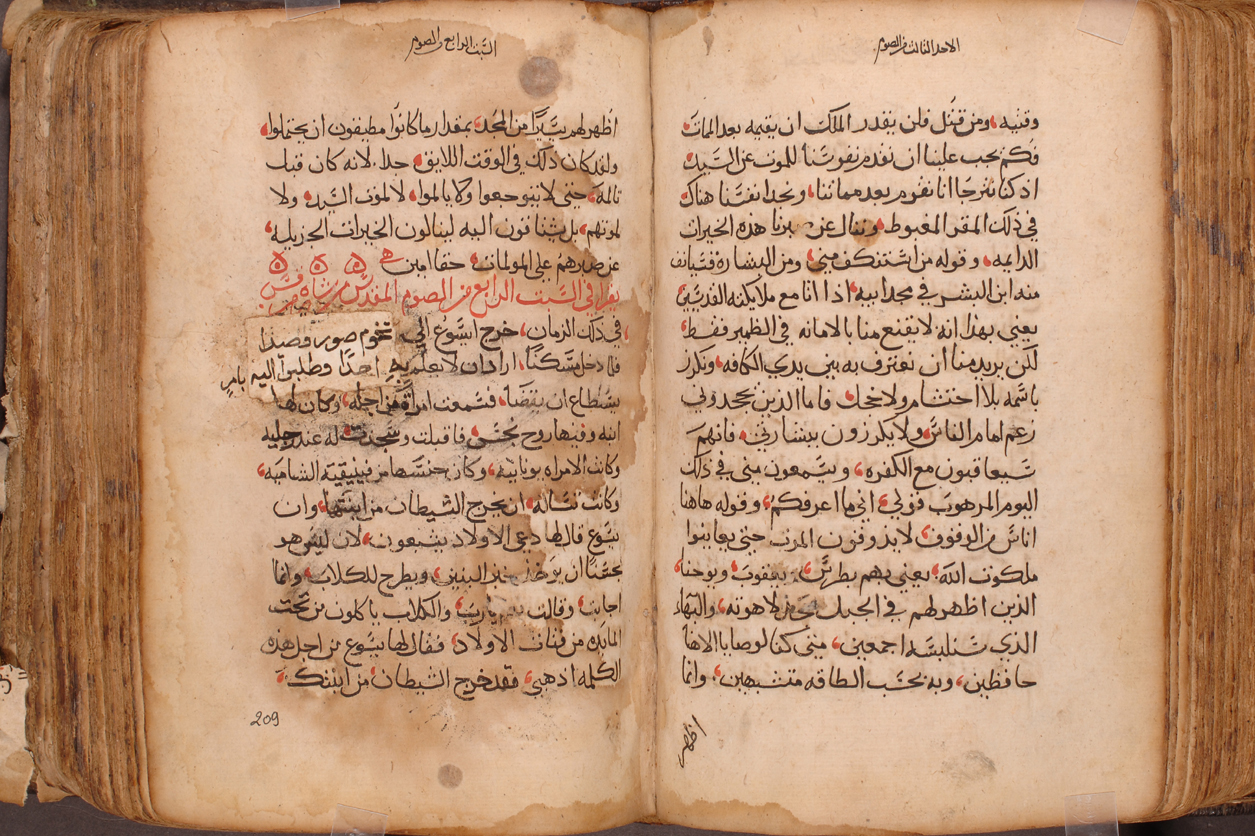 الاحد الثالث من الصوم
وقنيه، ومن قتل فلن يقدر الملك ان يقيمه بعد الممات
فكم يجب علينا ان نقدم نفوسنا للموت عن السيد
اذ كنا نترجا اننا نقوم بعد مماتنا، ونجد انفسنا هناك
في ذلك المقر المغبوط، وننال عن هذه الخيرات
الدايمه، وقوله من استنكف مني ومن البشارة فسيانف
منه ابن البشر في مجد ابيه اذا اتا مع ملايكته القديسين
يعني بهذا انه لا يقنع منا بالامانه في الظمير فقط
لكن يريد منا ان نعترف به بين يدي الكافه، ونكرز
باسمه بلا احتشام ولا خجل، فاما الذين يجحدوني
زعم امام الناس، ولا يكرزون ببشارتي، فانهم
سيعاقبون مع الكفره، ويسمعون مني في ذلك
اليوم المرهوب قولي، اني ما اعرفكم، وقوله هاهنا
اناس من الوقوف لا يدوقون الموت حتي يعاينوا
ملكوت الله، يعني بهم بطرس، يعقوب، ويوحنا،
الذين اظهر لهم في الجبل لاهوته، والبهاء
الذي سنلبسه اجمعين، متي كنا لوصايا الاها
حافظين، وبه بحسب الطاقه متشبهين، وانما
اظهر
السبت الرابع من الصوم
اظهر لهم يسيرا من المجد، بمقدار ما كانوا مطيقون ان يحتملوا،
ولقد كان ذلك في الوقت اللايق، جدا، لانه كان قبل
تالمه، حتي لا يتوجعوا ولا يالموا، لا لموت السيد، ولا
لموتهم، بل يشتاقون اليه لينالون الخيرات الجزيله،
عن صبرهم علي المولمات، حقا امين
يقرا في السبت الرابع من الصوم المقدس من بشاره مرقس
في ذلك الزمان، خرج ايسوع الي تخوم صور وصيدا
فلما دخل مسكنا، اراد ان لا يعلم به احدا وطلبوا اليه بامر
يستطاع ان يقضا، فسمعت امراة من اجله، وكان لها
ابنه وفيها روح نجس، فاقبلت وسجدت له عند رجليه
وكانت الامراه يونانيه، وكان جنسها من فينيقيه الشاميه،
وكانت تساله، ان يخرج الشيطان من ابنتها، وان
يسوع قال لها دعي الاولاد يشبعون، لان ليس هو
بحسنا ان يوخذ خبز البنين، ويطرح للكلاب، وانما
اجابت، وقالت نعم يارب، والكلاب ياكلون من تحت
المايده من فتات الاولاد، فقال لها يسوع من اجل هذه
الكلمه اذهبي، فقد خرج الشيطان من ابنتك
209